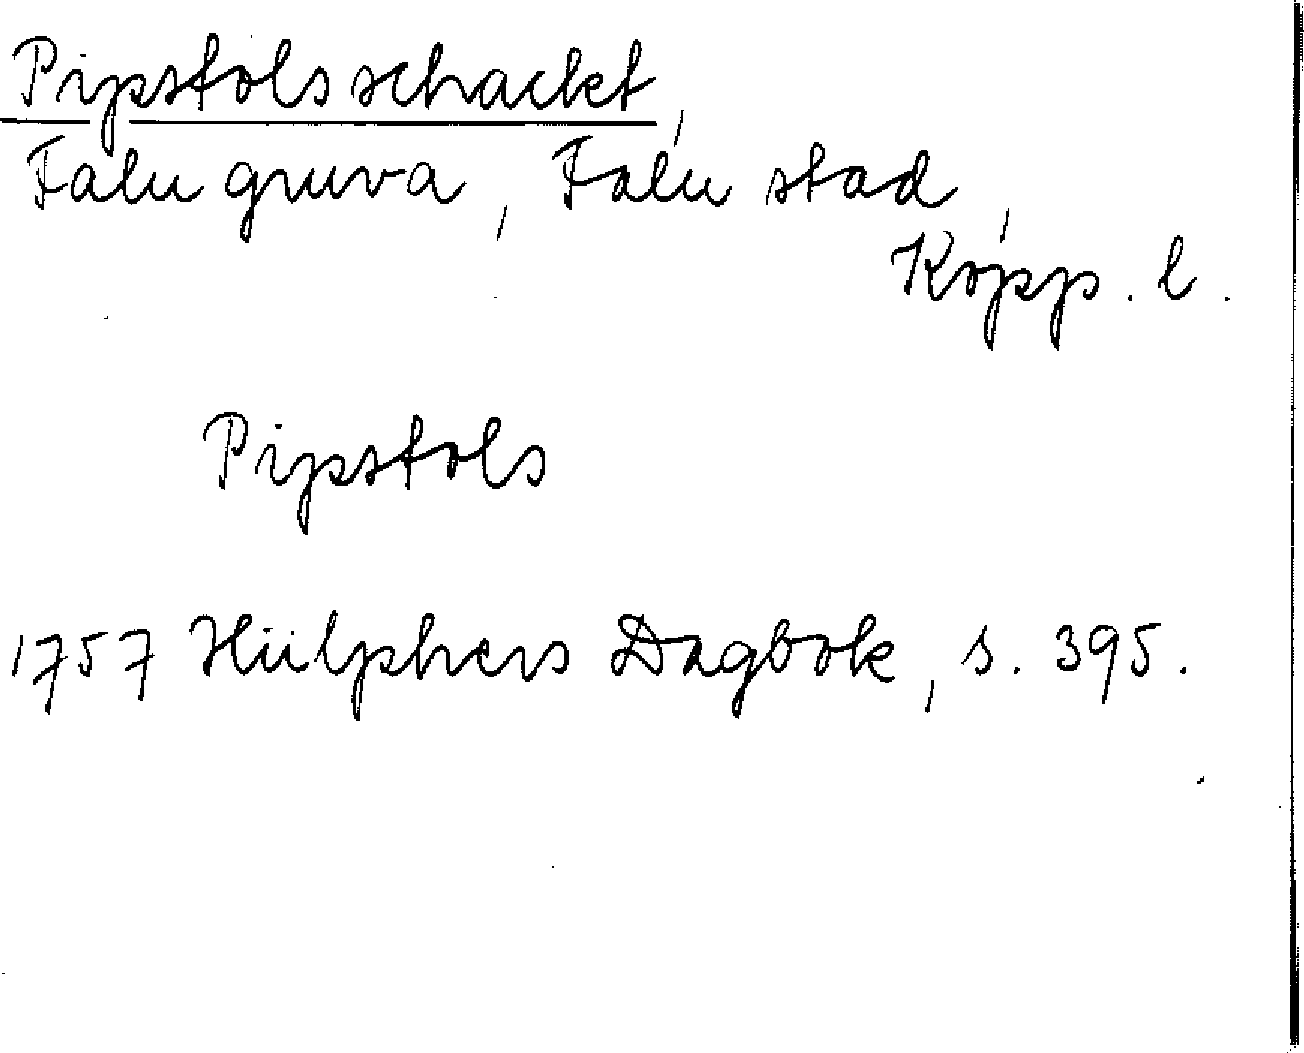 Pipstolsschacket,
Falu gruva, Falu stad,
Kopp. l.
Pipstols
1757 Hülphers Dagbok, s. 395.